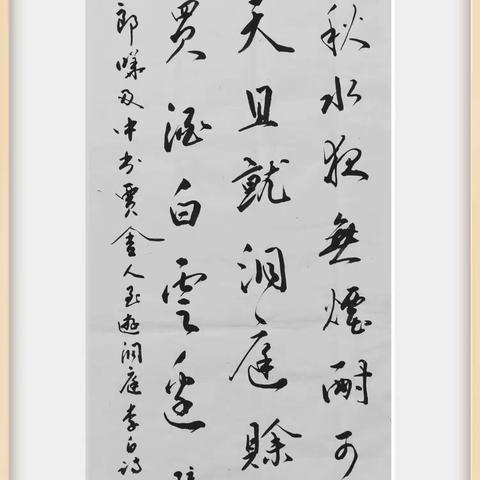 秋水夜無煙耐可
天且就洞庭賒
買酒白雲邊
郎曄及中書賈舍人至遊洞庭李白詩